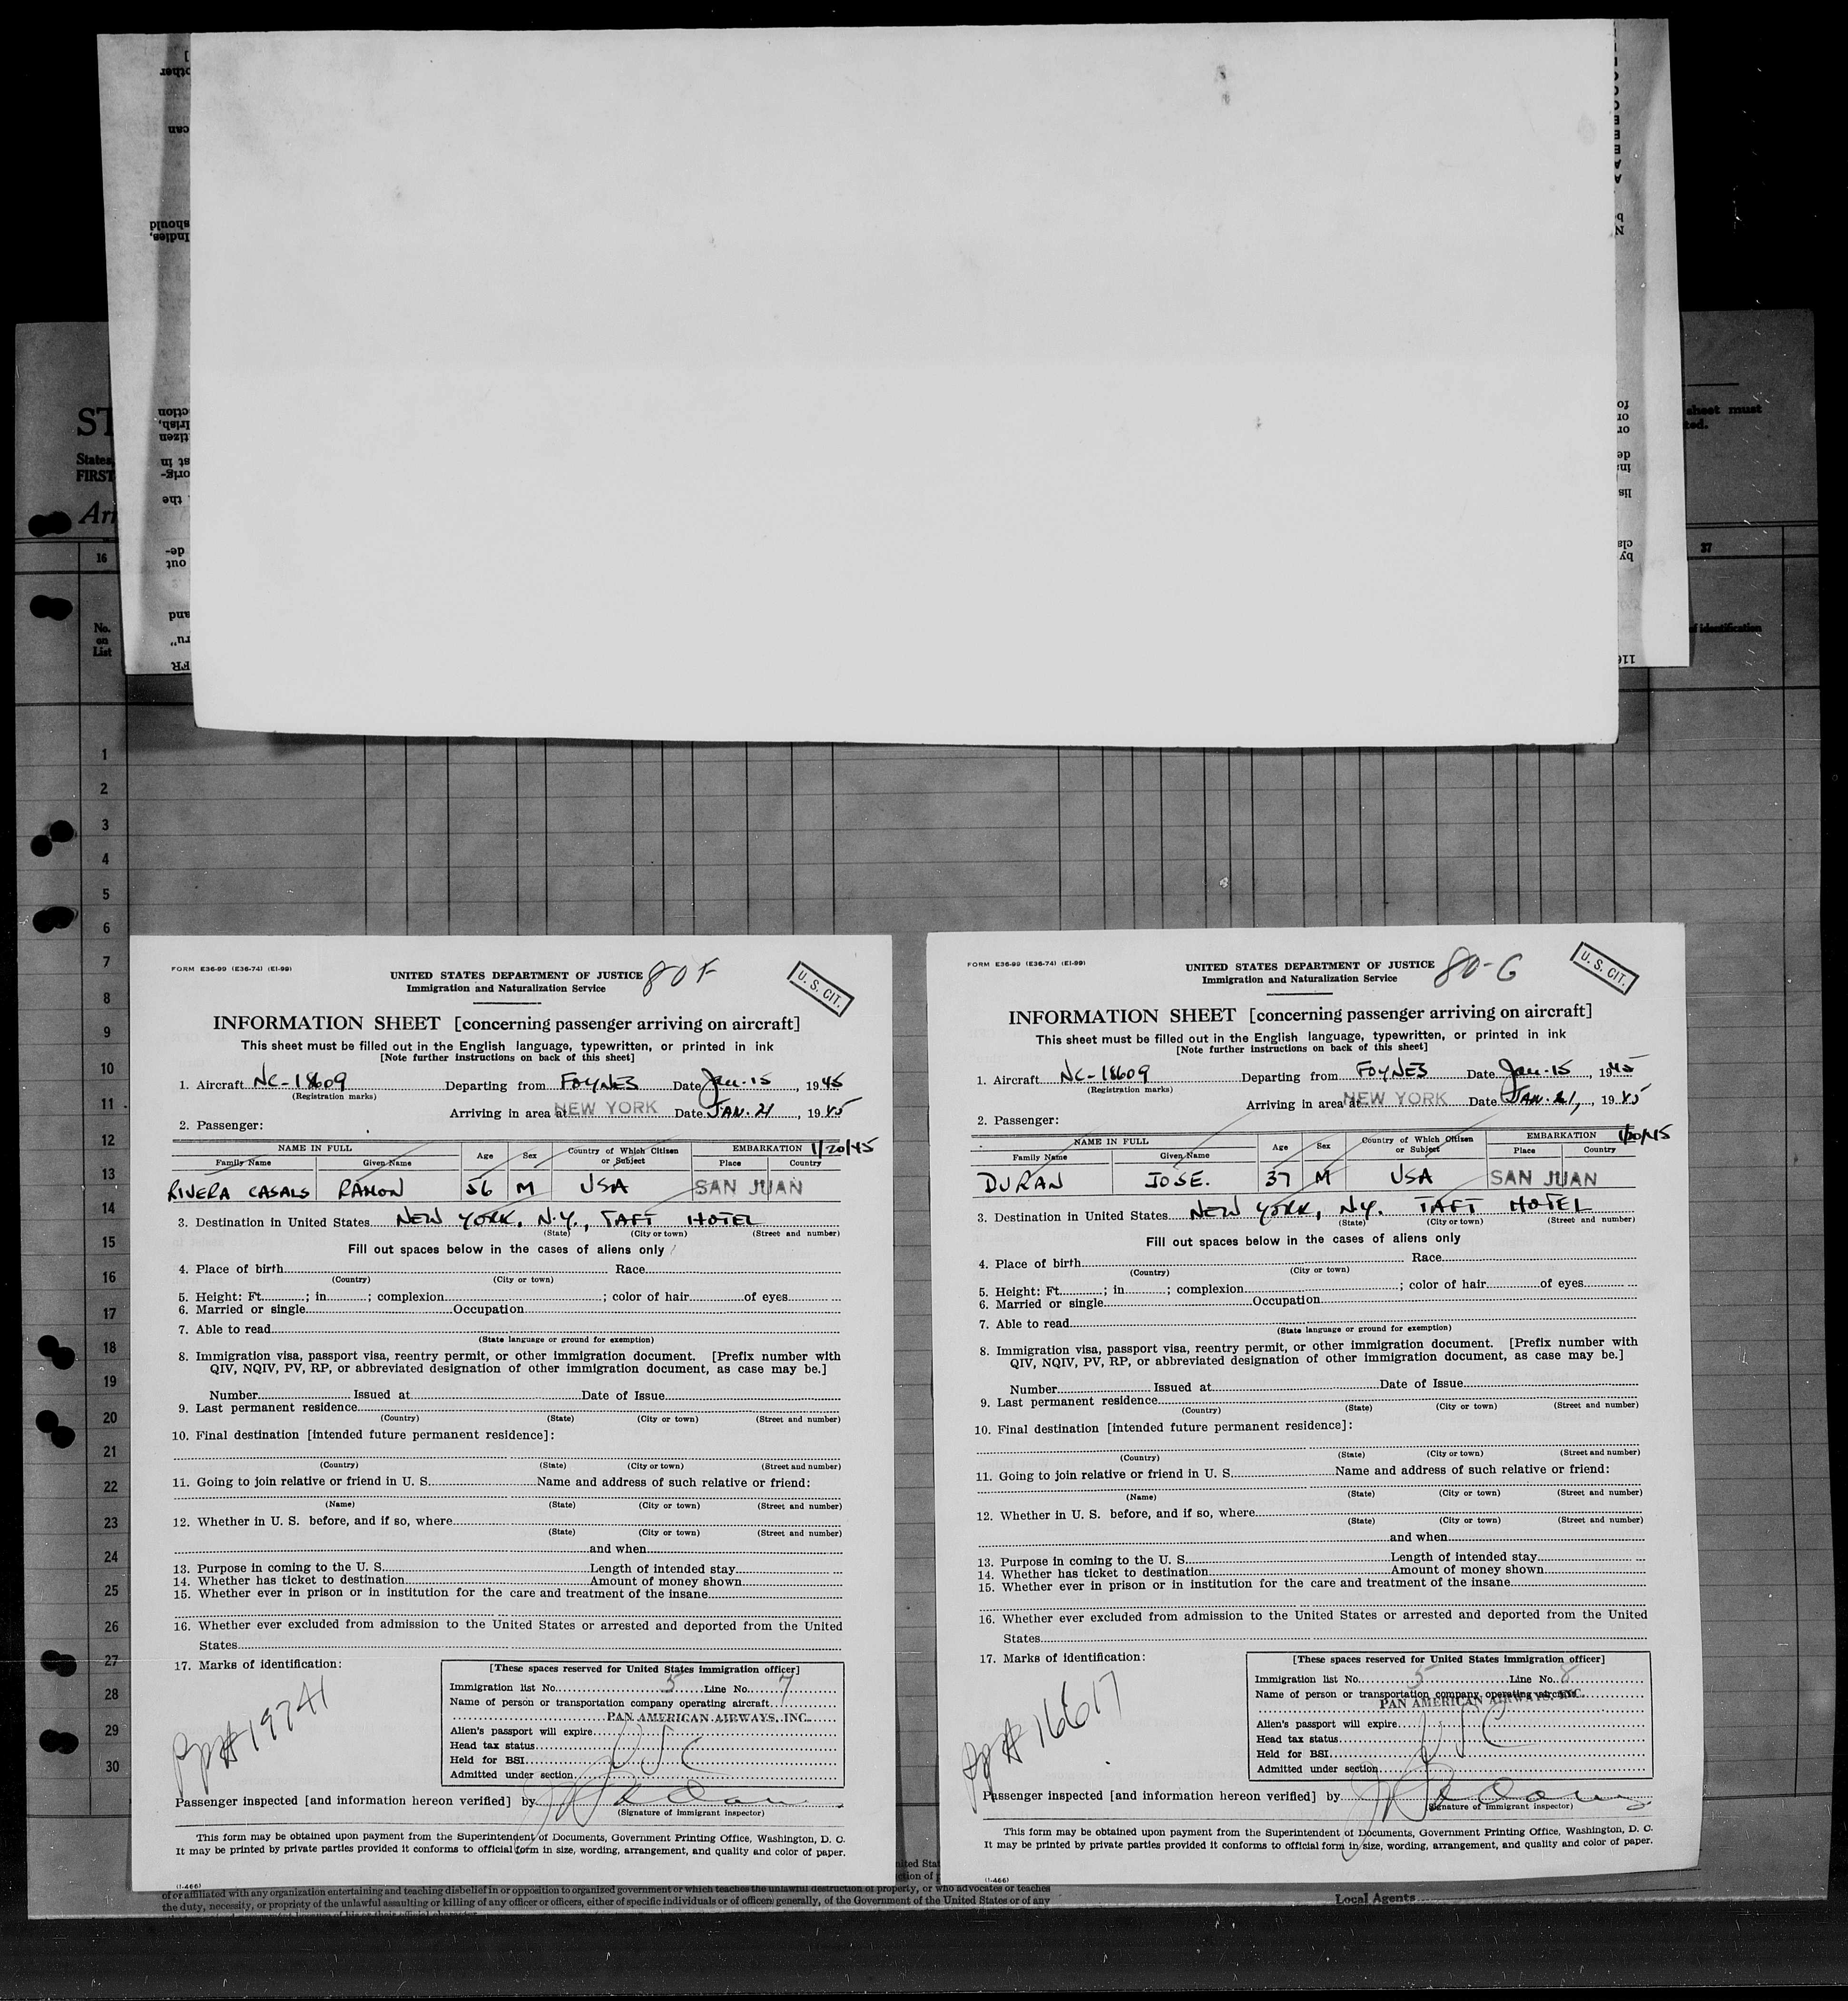 ST
States,
FIRST
Arr
16
No.
on
List
sheet must
ted.
37
of identification
1
2
3
4
5
6
7
8
9
10
11
12
13
14
15
16
17
18
19
20
21
22
23
24
25
26
27
28
29
30
FORM E36-99 (E36-74) (E1-99)
UNITED STATES DEPARTMENT OF JUSTICE 80F
Immigration and Naturalization Service
U. S. CIT.
INFORMATION SHEET [concerning passenger arriving on aircraft]
This sheet must be filled out in the English language, typewritten, or printed in ink
[Note further instructions on back of this sheet]
1. Aircraft NC-18609 Departing from FOYNES Date Jan. 15, 1945
(Registration marks)
Arriving in area at NEW YORK Date JAN. 21, 1945
2. Passenger:
NAME IN FULL Age Sex Country of Which Citizen or Subject EMBARKATION 1/20/45
Family Name Given Name Place Country
RIVERA CASALS RAMON 56 M USA SAN JUAN
3. Destination in United States NEW YORK, N.Y., TAFT HOTEL
(State) (City or town) (Street and number)
Fill out spaces below in the cases of aliens only
4. Place of birth Race
(Country) (City or town)
5. Height: Ft. ; in ; complexion ; color of hair of eyes
6. Married or single Occupation
7. Able to read
(State language or ground for exemption)
8. Immigration visa, passport visa, reentry permit, or other immigration document. [Prefix number with
QIV, NQIV, PV, RP, or abbreviated designation of other immigration document, as case may be.]
Number Issued at Date of Issue
9. Last permanent residence
(Country) (State) (City or town) (Street and number)
10. Final destination [intended future permanent residence]:
(Country) (State) (City or town) (Street and number)
11. Going to join relative or friend in U. S. Name and address of such relative or friend:
(Name) (State) (City or town) (Street and number)
12. Whether in U. S. before, and if so, where
(State) (City or town) (Street and number)
and when
13. Purpose in coming to the U. S. Length of intended stay
14. Whether has ticket to destination Amount of money shown
15. Whether ever in prison or in institution for the care and treatment of the insane
16. Whether ever excluded from admission to the United States or arrested and deported from the United
States
17. Marks of identification:
19741
[These spaces reserved for United States immigration officer]
Immigration list No. 5 Line No. 7
Name of person or transportation company operating aircraft
PAN AMERICAN AIRWAYS, INC.
Alien's passport will expire
Head tax status USC
Held for BSI
Admitted under section
Passenger inspected [and information hereon verified] by
(Signature of immigrant inspector)
This form may be obtained upon payment from the Superintendent of Documents, Government Printing Office, Washington, D. C.
It may be printed by private parties provided it conforms to official form in size, wording, arrangement, and quality and color of paper.
(1-466)
FORM E36-99 (E36-74) (E1-99)
UNITED STATES DEPARTMENT OF JUSTICE 80-G
Immigration and Naturalization Service
U. S. CIT.
INFORMATION SHEET [concerning passenger arriving on aircraft]
This sheet must be filled out in the English language, typewritten, or printed in ink
[Note further instructions on back of this sheet]
1. Aircraft NC-18609 Departing from FOYNES Date Jan. 15, 1945
(Registration marks)
Arriving in area at NEW YORK Date JAN. 21, 1945
2. Passenger:
NAME IN FULL Age Sex Country of Which Citizen or Subject EMBARKATION 1/20/45
Family Name Given Name Place Country
DURAN JOSE. 37 M USA SAN JUAN
3. Destination in United States NEW YORK, N.Y. TAFT HOTEL
(State) (City or town) (Street and number)
Fill out spaces below in the cases of aliens only
4. Place of birth Race
(Country) (City or town)
5. Height: Ft. ; in ; complexion ; color of hair of eyes
6. Married or single Occupation
7. Able to read
(State language or ground for exemption)
8. Immigration visa, passport visa, reentry permit, or other immigration document. [Prefix number with
QIV, NQIV, PV, RP, or abbreviated designation of other immigration document, as case may be.]
Number Issued at Date of Issue
9. Last permanent residence
(Country) (State) (City or town) (Street and number)
10. Final destination [intended future permanent residence]:
(Country) (State) (City or town) (Street and number)
11. Going to join relative or friend in U. S. Name and address of such relative or friend:
(Name) (State) (City or town) (Street and number)
12. Whether in U. S. before, and if so, where
(State) (City or town) (Street and number)
and when
13. Purpose in coming to the U. S. Length of intended stay
14. Whether has ticket to destination Amount of money shown
15. Whether ever in prison or in institution for the care and treatment of the insane
16. Whether ever excluded from admission to the United States or arrested and deported from the United
States
17. Marks of identification:
16617
[These spaces reserved for United States immigration officer]
Immigration list No. 5 Line No. 8
Name of person or transportation company operating aircraft
PAN AMERICAN AIRWAYS, INC.
Alien's passport will expire
Head tax status USC
Held for BSI
Admitted under section
Passenger inspected [and information hereon verified] by
(Signature of immigrant inspector)
This form may be obtained upon payment from the Superintendent of Documents, Government Printing Office, Washington, D. C.
It may be printed by private parties provided it conforms to official form in size, wording, arrangement, and quality and color of paper.
(1-466)
of or affiliated with any organization entertaining and teaching disbelief in or opposition to organized government or which teaches the unlawful destruction of property, or who advocates or teaches
the duty, necessity, or propriety of the unlawful assaulting or killing of any officer or officers, either of specific individuals or of officers generally, of the Government of the United States or of any
Local Agents